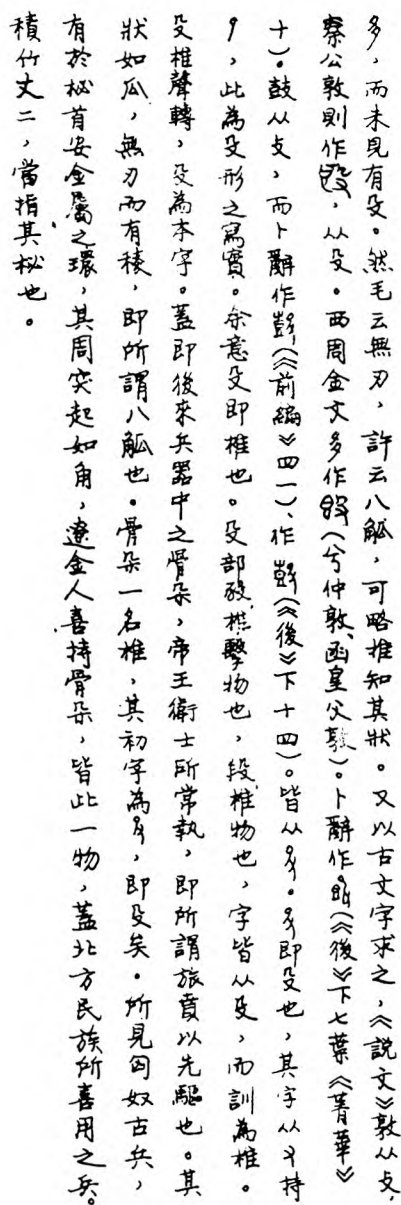 多，而未見有殳。然毛云無刃，許云八觚，可略推知其狀。又以古文字求之，《說文》敦从攴，
寮公敦則作，从殳。西周金文多作（兮仲敦、函皇父敦）。卜辭作（《後》下七葉《菁華》
十）。鼓从攴，而卜辭作（《前編》四一）、作（《後》下十四）。皆从。即殳也，其字从又持
，此為殳形之寫實。余意殳即椎也。殳部毃，椎擊物也，段，椎物也，字皆从殳，而訓為椎。
殳椎聲轉，殳為本字。蓋即後來兵器中之骨朵，帝王衛士所常執，即所謂旅賁以先驅也。其
狀如瓜，無刃而有棱，即所謂八觚也。骨朵一名椎，其初字為，即殳矣。所見匈奴古兵，
有於柲首安金屬之環，其周突起如角，遼金人喜持骨朵，皆此一物，蓋北方民族所喜用之兵。
積竹丈二，當指其柲也。